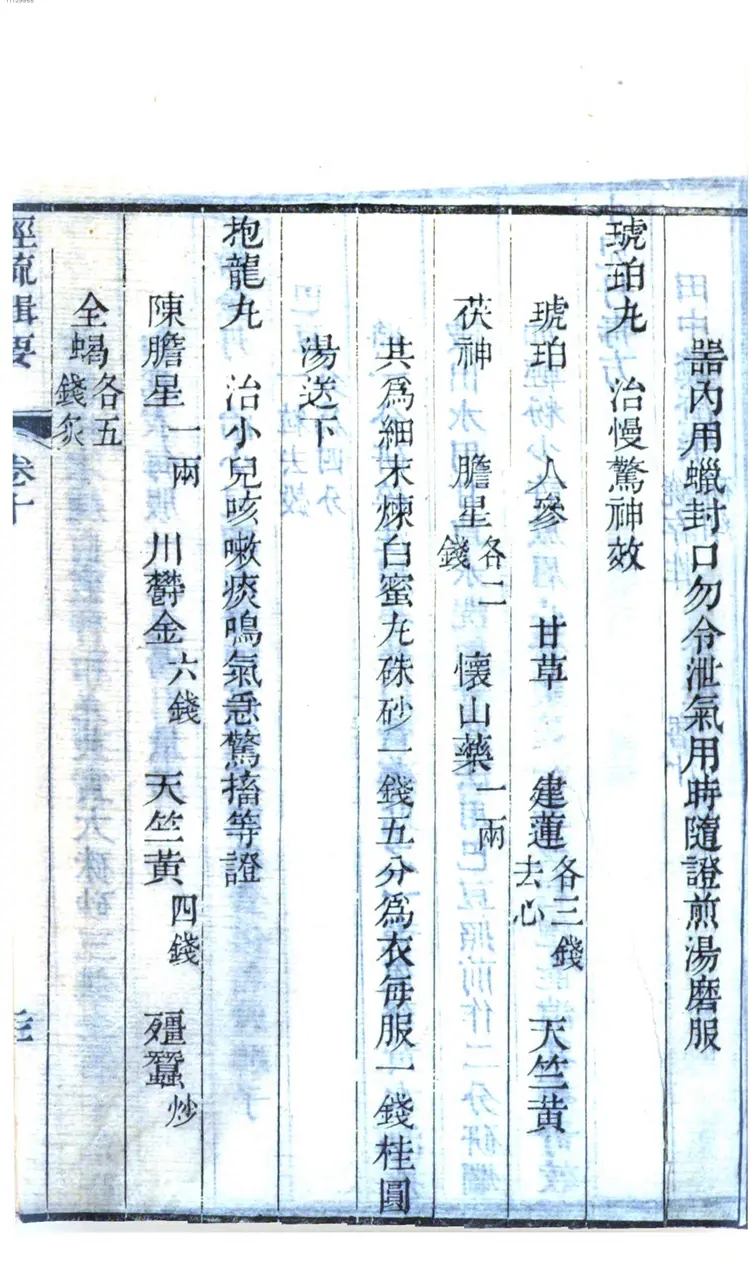 器內用蠟封口勿令泄氣用時隨證煎湯磨服
琥珀丸　治慢驚神效
琥珀　人參　甘草　建蓮各三錢去心　天竺黃
茯神　膽星各二錢　懷山藥一兩
共爲細末煉白蜜丸硃砂一錢五分爲衣每服一錢桂圓
湯送下
抱龍丸　治小兒咳嗽痰鳴氣急驚搐等證
陳膽星一兩　川鬱金六錢　天竺黃四錢　殭蠶炒
全蝎各五錢炙
輯要　卷十